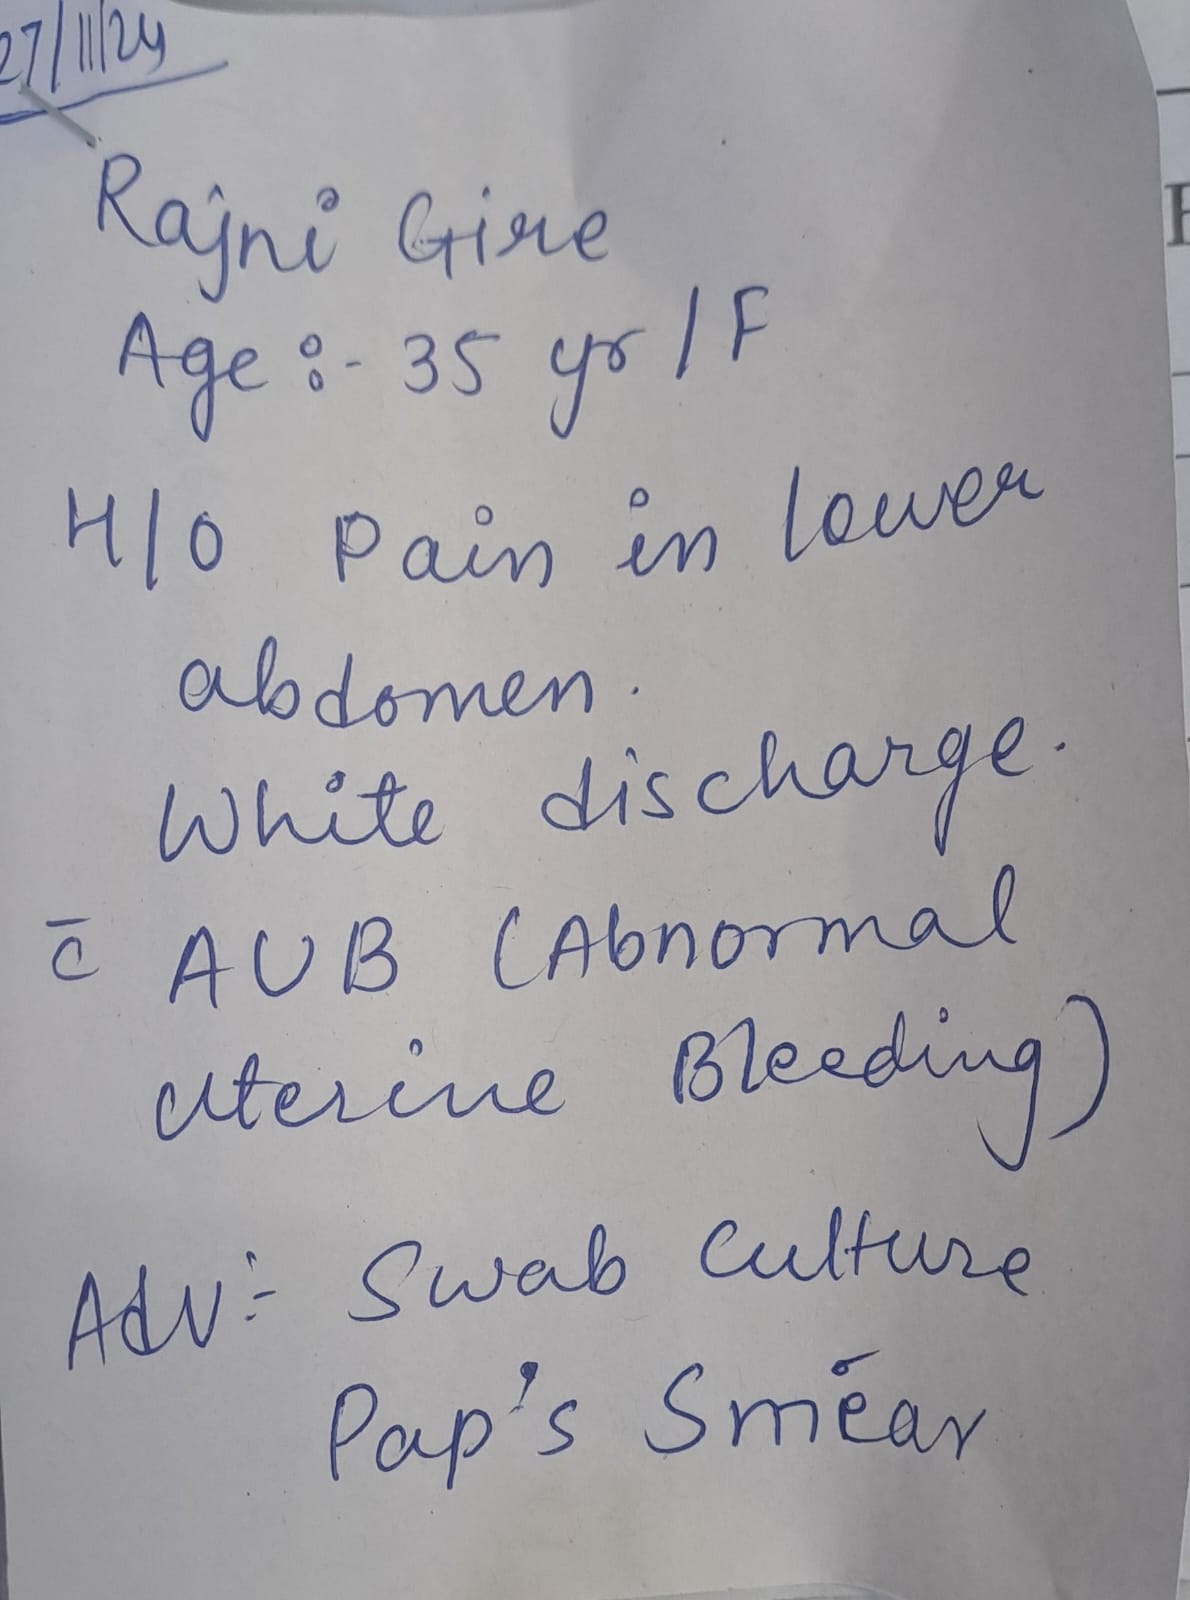 27/11/24
Rajni Gire
Age :- 35 yr / F
H/O Pain in lower
abdomen.
White discharge.
c̄ AUB (Abnormal
uterine Bleeding)
Adv :- Swab Culture
Pap's Smear